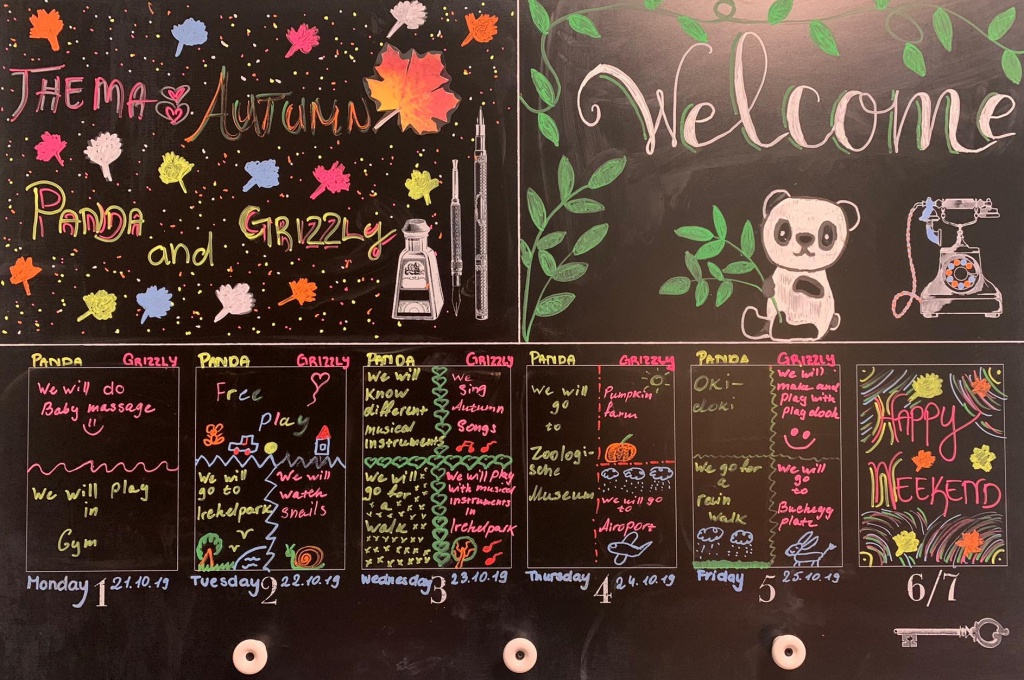 THEMA: AUTUMN
PANDA
and
GRIZZLY
Welcome
PANDA GRIZZLY
We will do
Baby massage
We will play
in
Gym
Monday 1 21.10.19
PANDA GRIZZLY
Free
play
We will
go to
Irchelpark
We will
watch
snails
Tuesday 2 22.10.19
PANDA GRIZZLY
We will
know
different
musical
instruments
We
Sing
Autumn
Songs
We will
go for
a
walk
We will play
with musical
instruments
in
Irchelpark
Wednesday 3 23.10.19
PANDA GRIZZLY
We will
go
to
Zoologi-
sche
Museum
Pumpkin
farm
We will go
to
Airoport
Thursday 4 24.10.19
PANDA GRIZZLY
Oki-
doki
We will
make and
play with
playdook
We go for
a
rain
walk
We will
go
to
Buchegg
platz
Friday 5 25.10.19
HAPPY
WEEKEND
6/7